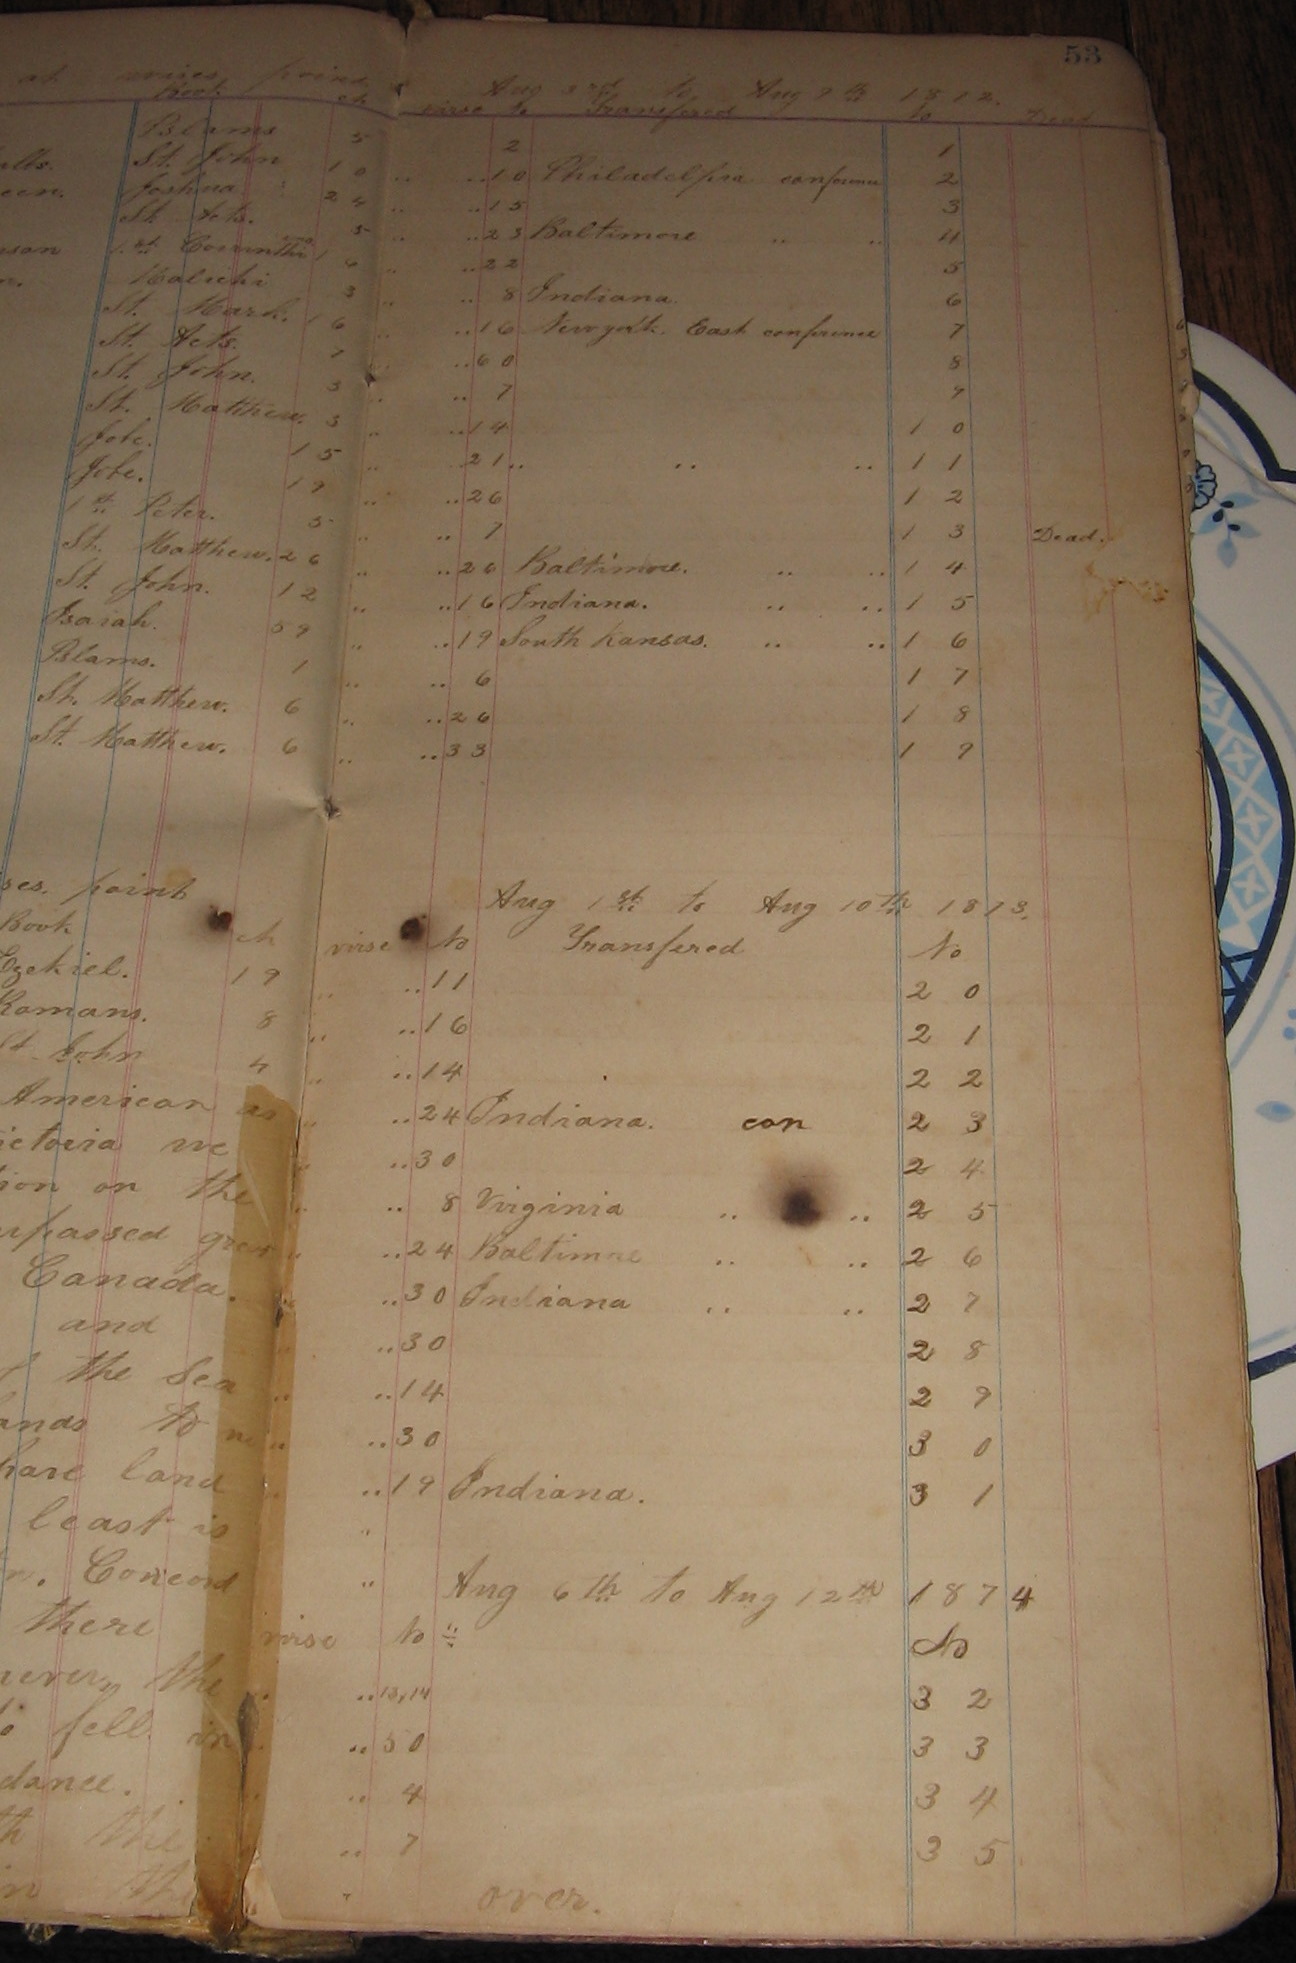 53
at vrices point Aug 3rd to Aug 7th 1872.
Book ch virse to Transfered No Dead
Blams 5 2 1
St. John 10 .. ..10 Philadelphia conference 2
Joshua 24 .. ..15 3
St. Acts. 5 .. ..23 Baltimore .. .. 4
1st Corinth 6 .. ..22 5
Malichi 3 .. .. 8 Indiana 6
St. Mark. 16 .. ..16 Newyork. East conference 7
St. Acts. 7 ..60 8
St. John. 3 .. .. 7 9
St. Matthew. 3 .. ..14 10
Jobe. 15 .. ..21 .. .. .. 11
Jobe. 19 .. ..26 12
1st Peter. 5 .. .. 7 13 Dead.
St. Matthew. 26 .. ..26 Baltimore. .. .. 14
St. John. 12 .. ..16 Indiana. .. .. 15
Isaiah. 59 .. ..19 South Kansas. .. .. 16
Blams. 1 .. .. 6 17
St. Matthew. 6 .. ..26 18
St. Matthew. 6 .. ..33 19
point Aug 1st to Aug 10th 1873.
Book ch virse to Transfered No
Ezekiel. 19 .. ..11 20
Romans. 8 .. ..16 21
St. John 4 .. ..14 22
American as .. ..24 Indiana. con 23
ictoria we .. ..30 24
ion on the .. .. 8 Virginia .. .. 25
urpassed .. ..24 Baltimre .. .. 26
Canada. .. ..30 Indiana .. .. 27
and .. ..30 28
the Sea .. ..14 29
ands to .. ..30 30
have land ..19 Indiana. 31
least is "
n. Concord " Aug 6th to Aug 12th 1874
there virse to No
never, the ..13,14 32
fell in ..50 33
dance. .. 4 34
th the .. 7 35
in the " over.